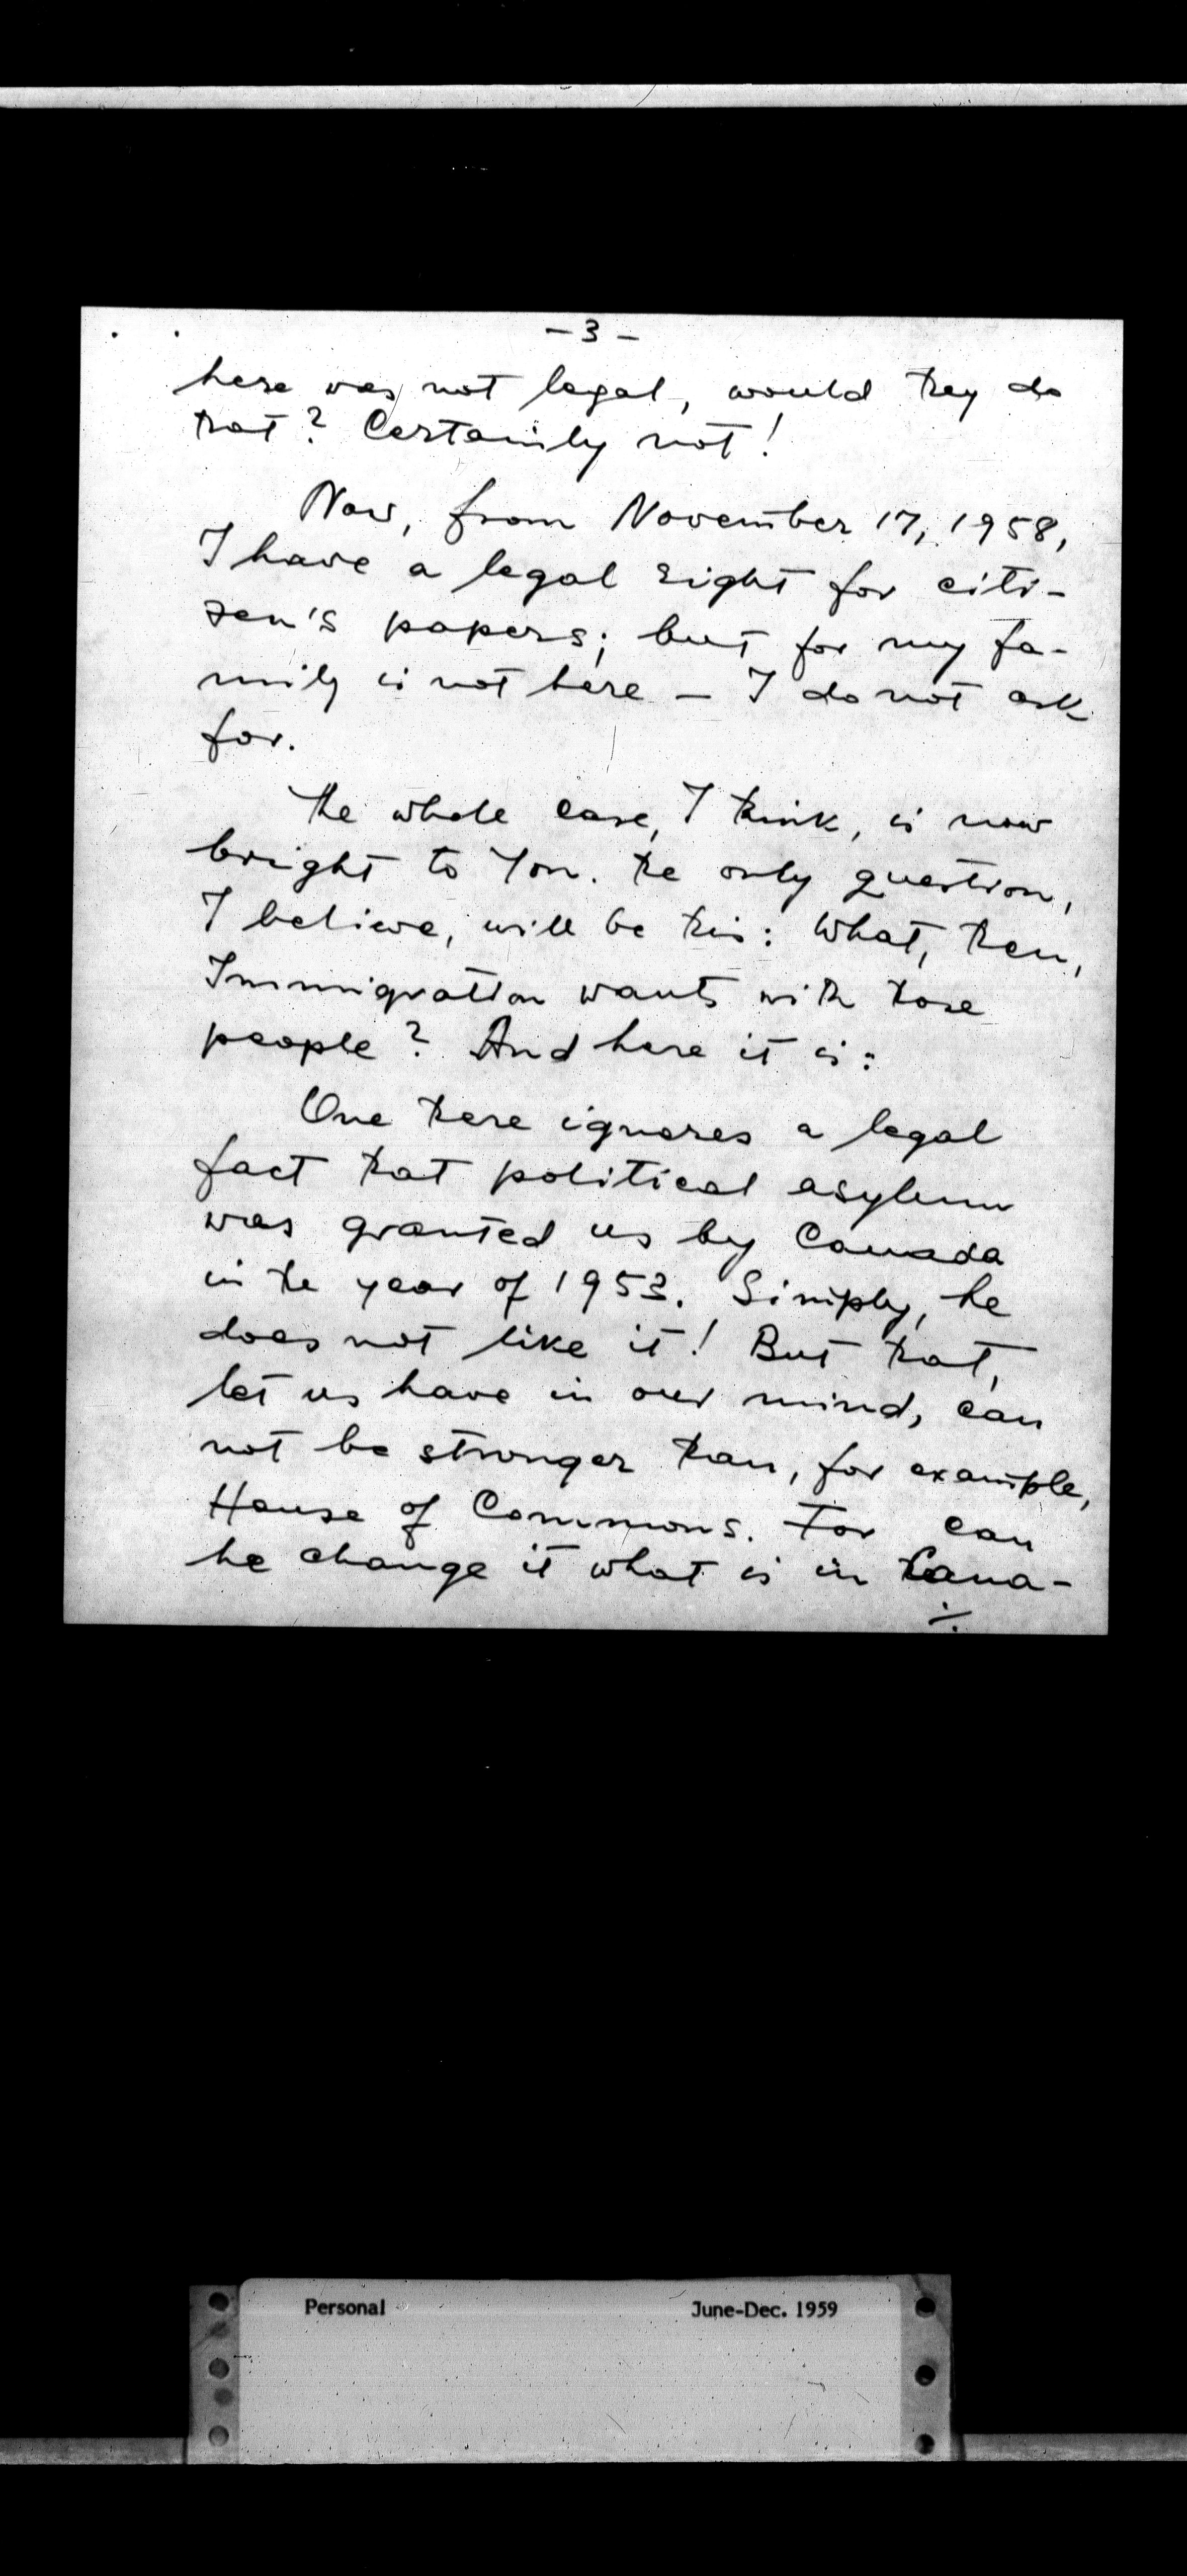 - 3 -
here was not legal, would they do
that? Certainily not!
Now, from November 17, 1958,
I have a legal right for citi-
zen's papers; but for my fa-
mily is not here - I do not ask
for.
The whole case, I think, is now
bright to You. The only question,
I believe, will be this: What, then,
Immigration wants with those
people? And here it is:
One there ignores a legal
fact that political asylum
was granted us by Canada
in the year of 1953. Simply, he
does not like it! But that,
let us have in our mind, can
not be stronger than, for example,
House of Commons. For can
he change it what is in Cana-
./.
Personal June-Dec. 1959